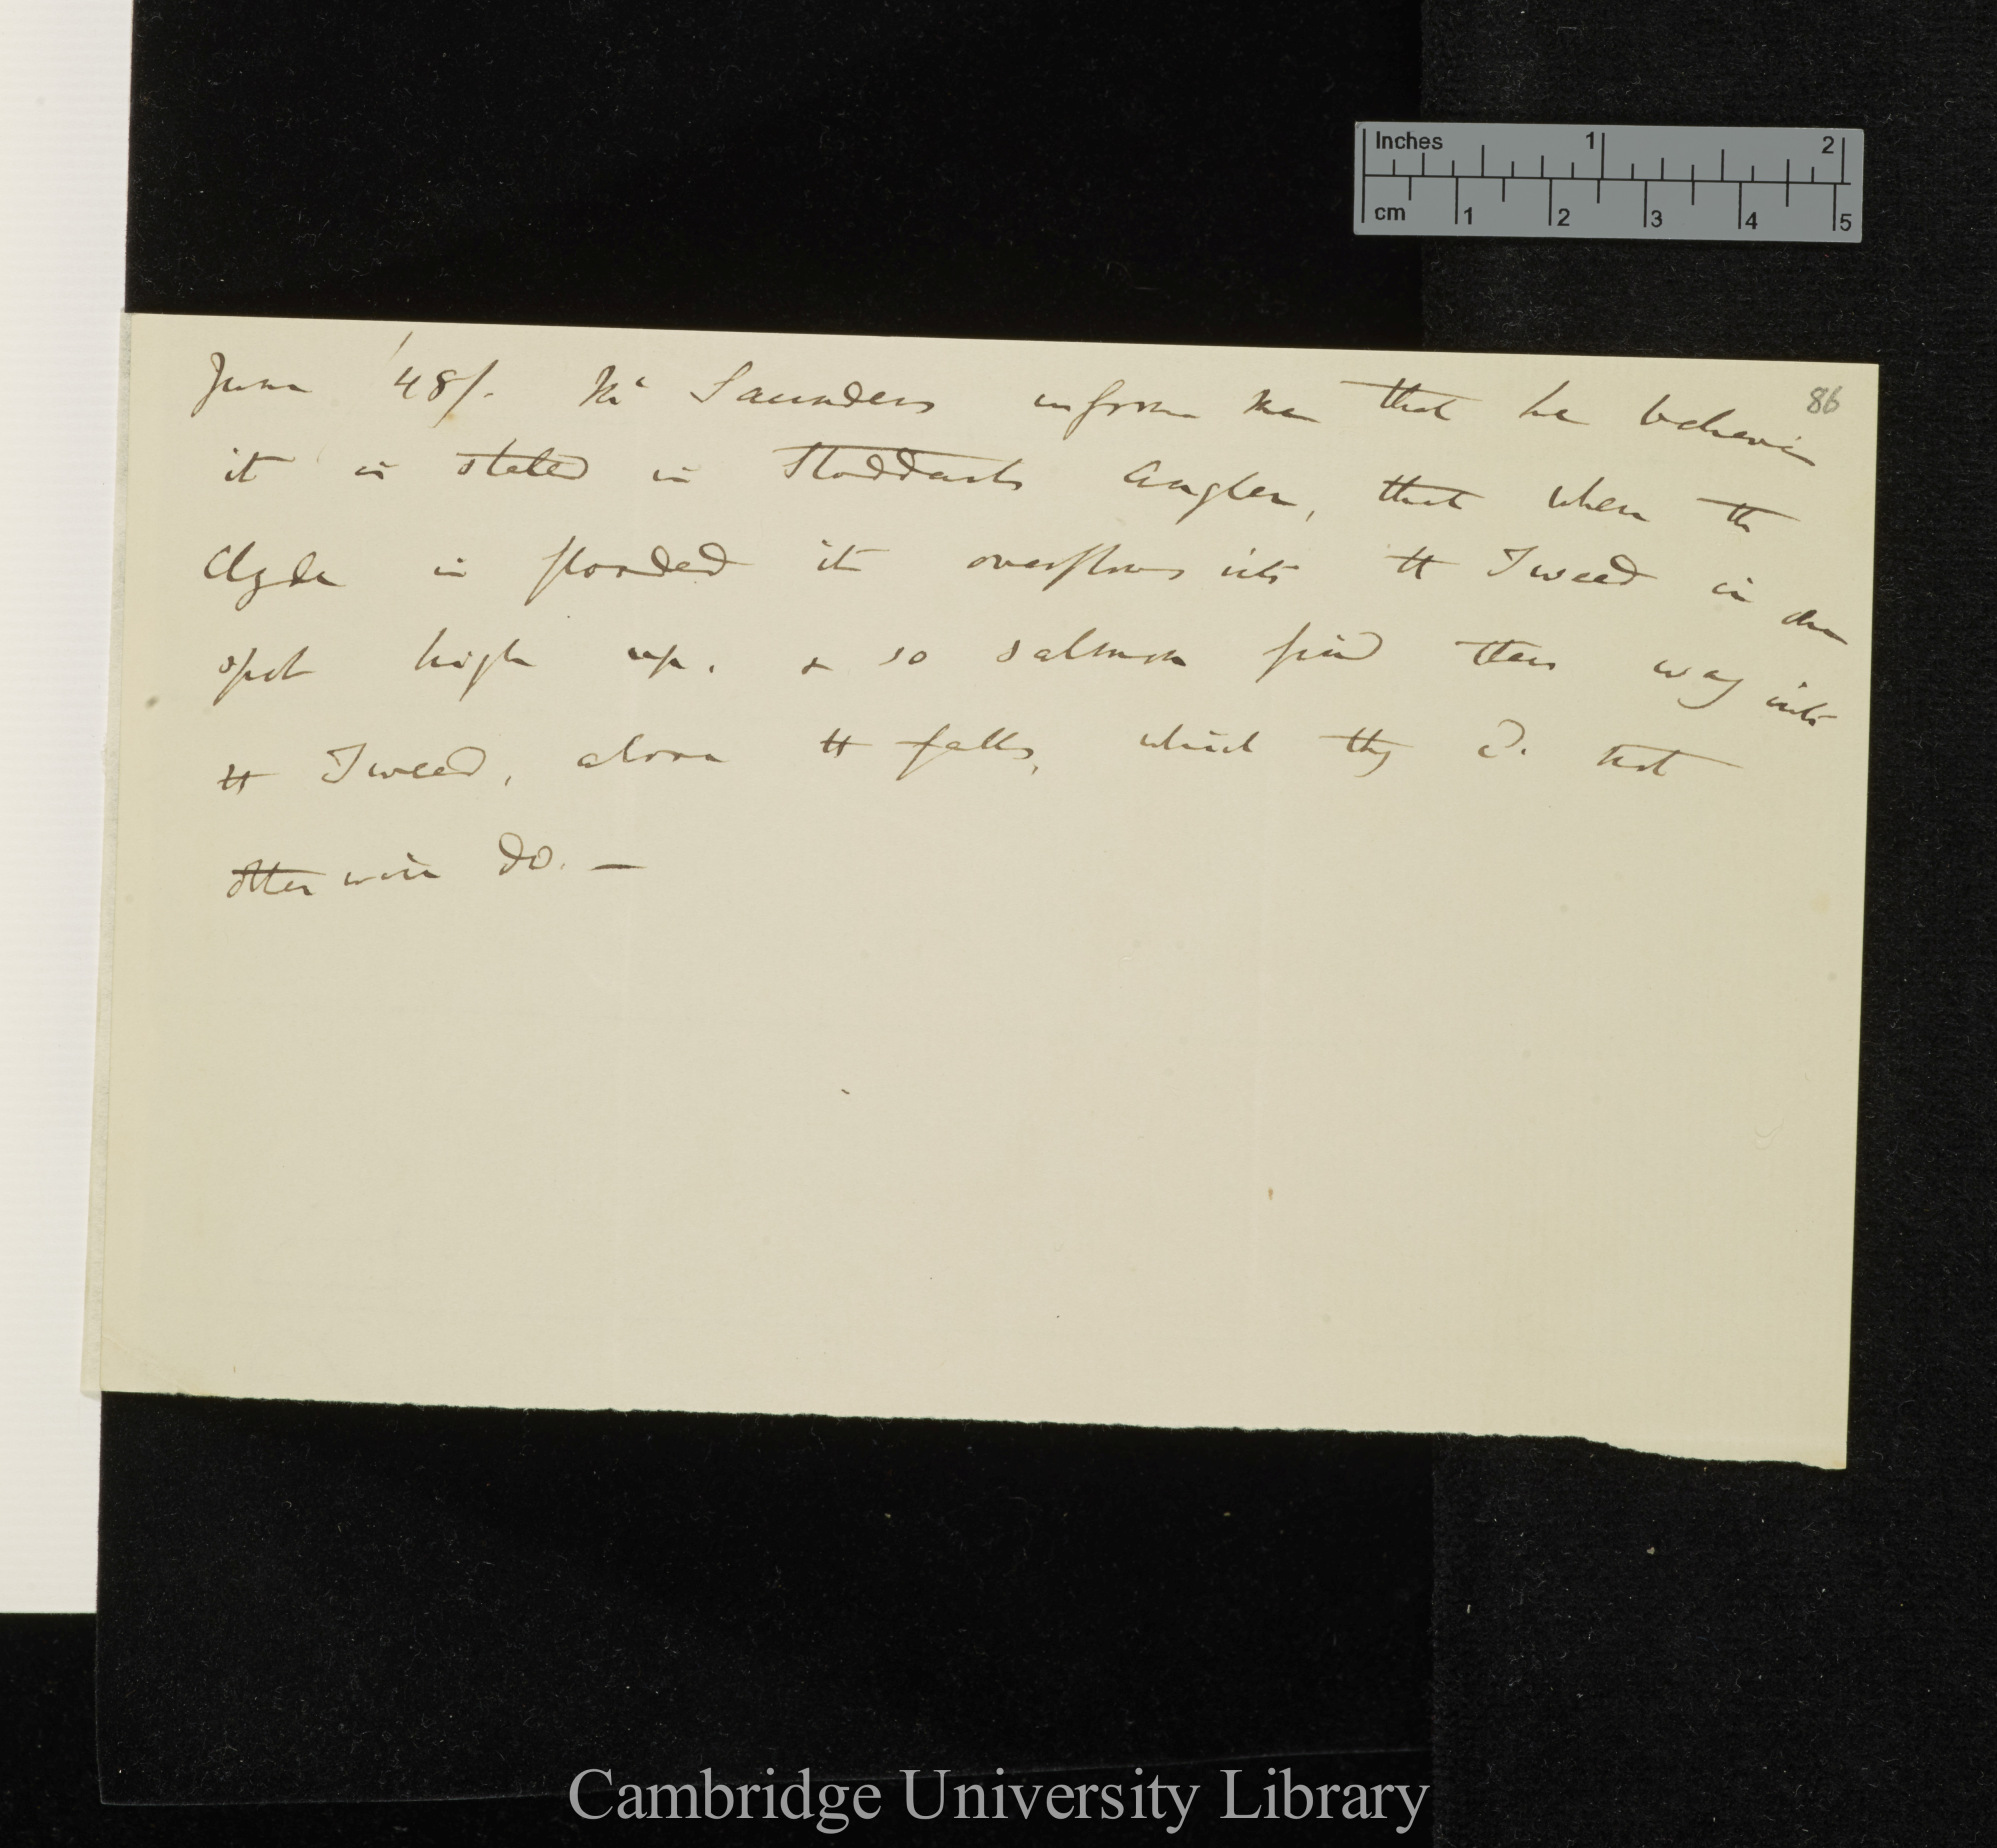 Inches 1 2
cm 1 2 3 4 5
86
June '48/. Mr Saunders informs me that he believes
it is stated in Stoddarts Angler, that when the
Clyde is flooded it overflows into the Tweed in one
spot high up. & so salmon find their way into
the Tweed, above the falls, which they cd. not
otherwise do. —
Cambridge University Library